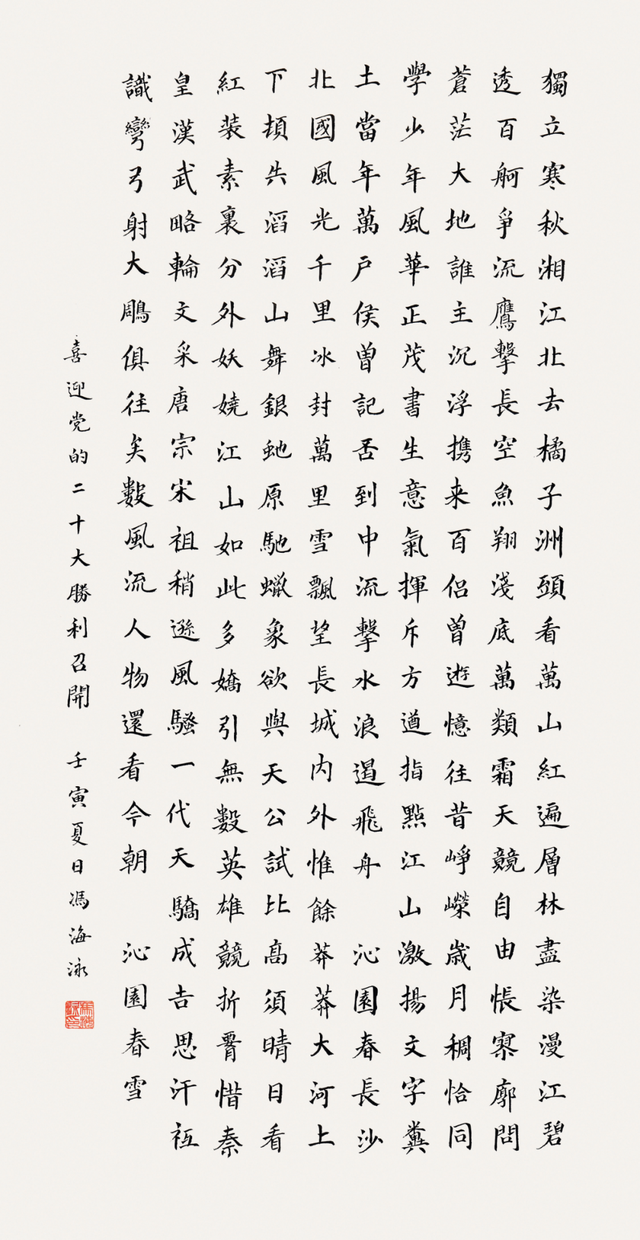 獨立寒秋湘江北去橘子洲頭看萬山紅遍層林盡染漫江碧
透百舸爭流鷹擊長空魚翔淺底萬類霜天競自由悵寥廓問
蒼茫大地誰主沉浮携来百侣曾遊憶往昔崢嶸歲月稠恰同
學少年風華正茂書生意氣揮斥方遒指點江山激揚文字糞
土當年萬戶侯曾記否到中流擊水浪遏飛舟 沁園春長沙
北國風光千里冰封萬里雪飄望長城内外惟餘莽莽大河上
下頓失滔滔山舞銀虵原馳蠟象欲與天公試比高須晴日看
紅装素裹分外妖嬈江山如此多嬌引無數英雄競折腰惜秦
皇漢武略輸文采唐宗宋祖稍遜風騷一代天驕成吉思汗祗
識彎弓射大鵰俱往矣數風流人物還看今朝 沁園春雪
喜迎党的二十大勝利召開 壬寅夏日馮海泳